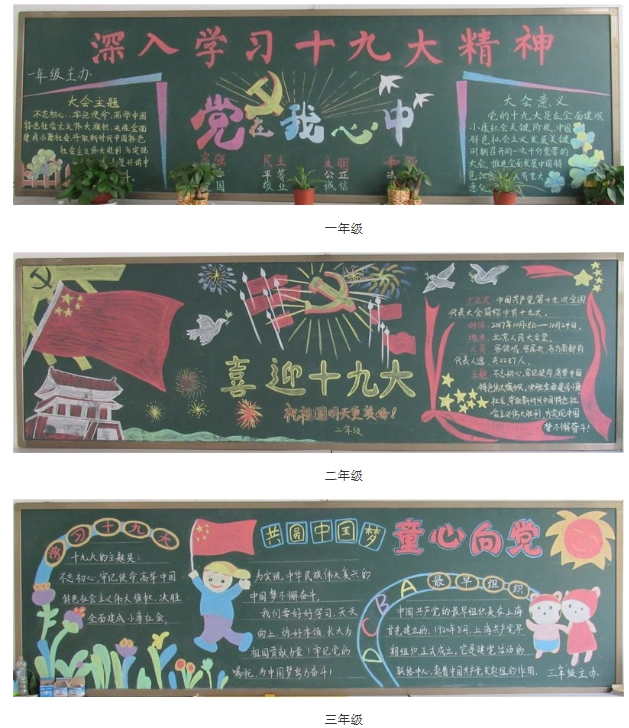 深入学习十九大精神
一年级主办
大会主题
不忘初心,牢记使命,高举中国
特色社会主义伟大旗帜,决胜全面
建成小康社会,夺取新时代中国特色
社会主义伟大胜利
党在我心中
富强
民主
文明
和谐
平等
公正
国
敬业
诚信
大会意义
党的十九大是在全面建成
小康社会关键阶段,中国
特色社会主义发展关键
时期召开的一次十分重要的
大会
一年级
喜迎十九大
祝祖国明天更美好!
二年级
十九大:中国共产党第十九次全国
代表大会简称中共十九大。
时间:2017年10月18日—10月24日。
地点:北京人民大会堂。
代表人选,共2287人。
主题:不忘初心,牢记使命,高举中国
特色伟大旗帜,决胜全面建成小康
社会,夺取新时代中国特色社
会主义伟大胜利,为实现中国
梦不懈奋斗!
二年级
学习十九大
十九大的主题是:
不忘初心,牢记使命,高举中国
特色社会主义伟大旗帜,决胜
全面建成小康社会,
共圆中国梦
为实现中华民族伟大复兴的
中国梦不懈奋斗。
我们要好好学习,天天
向上,练好本领,长大为
祖国贡献力量!牢记党的
嘱托,为中国梦努力奋斗!
童心向党
ABCD
最早组织
中国共产党的最早组织是在上海
首先建立的,1920年8月,上海共产党早
期组织正式成立,它是建党活动的
联络中心,起着中国共产党发起组的作用。
三年级主办
三年级